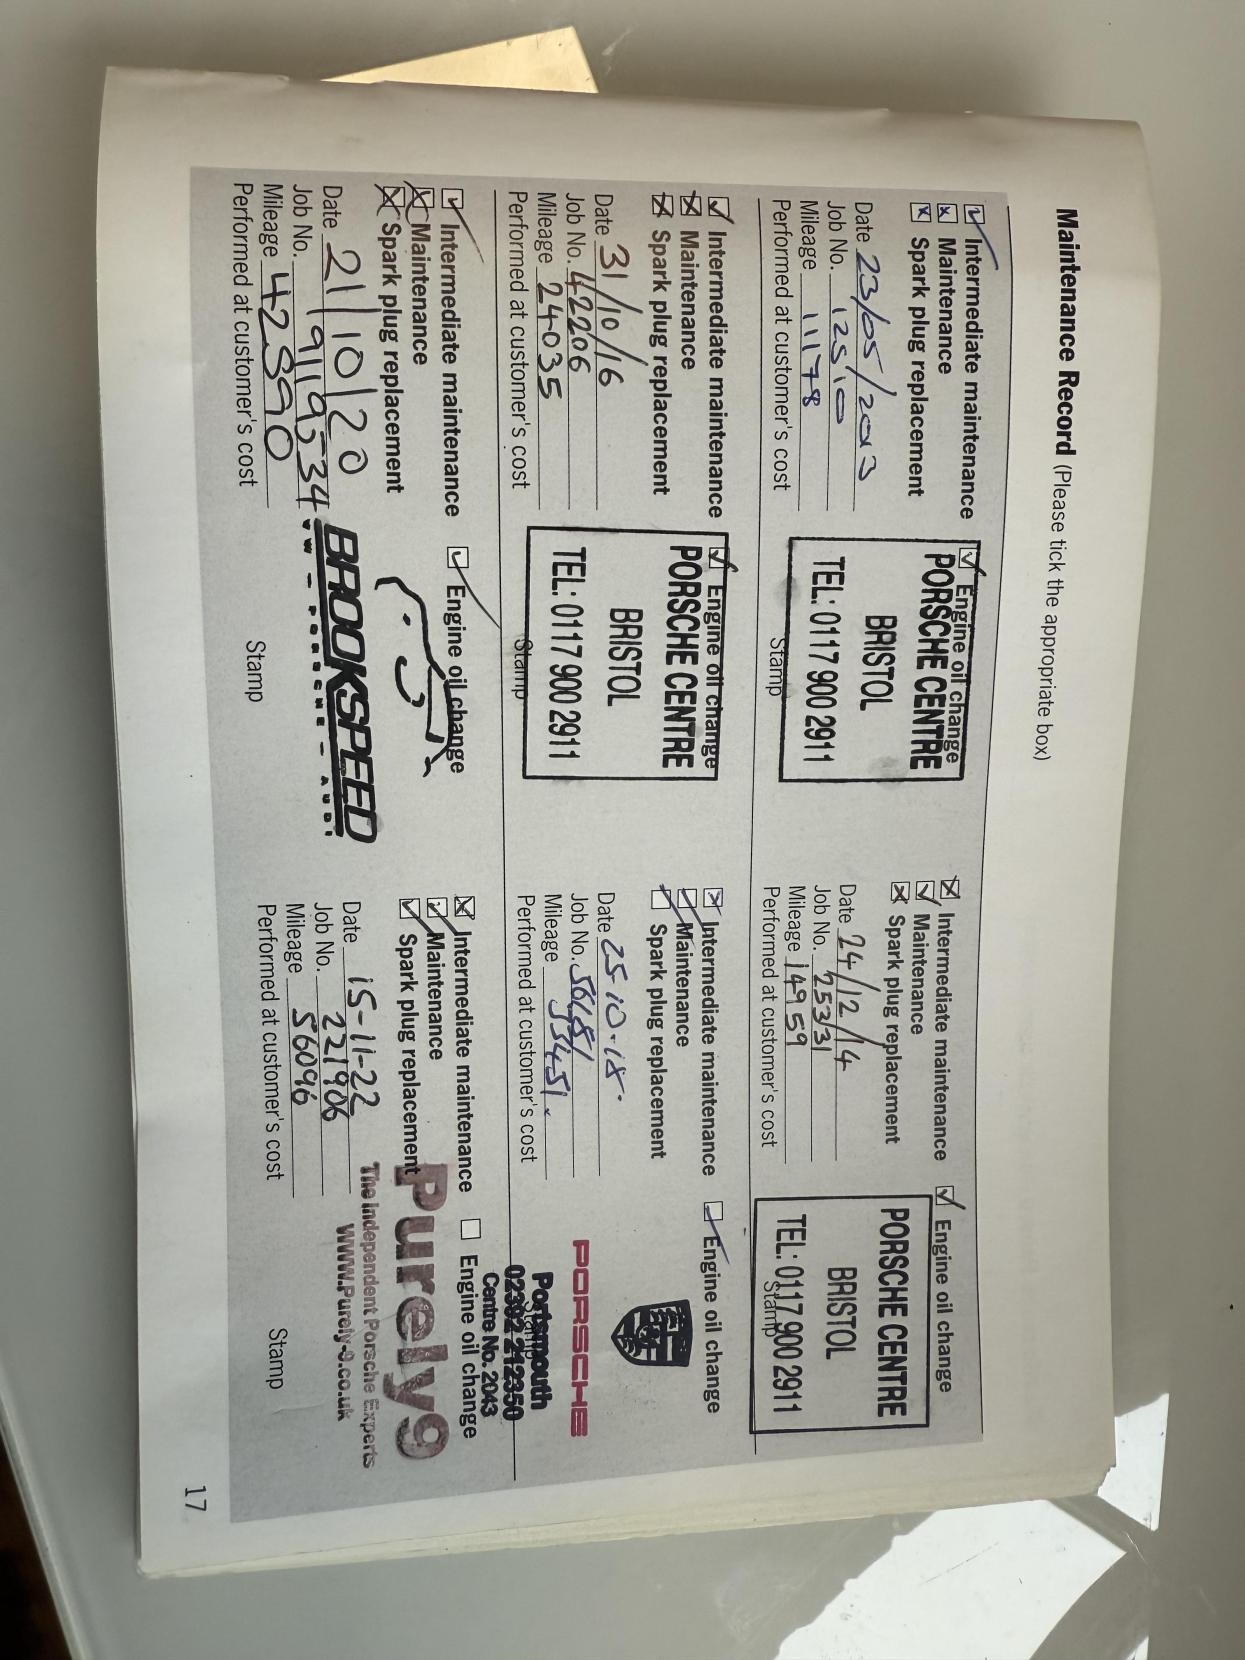 Maintenance Record (Please tick the appropriate box)
Intermediate maintenance
Engine oil change
Maintenance
Spark plug replacement
Date 23/05/2013
Job No. 12510
Mileage 11178
Performed at customer's cost
PORSCHE CENTRE
BRISTOL
TEL: 0117 900 2911
Stamp
Intermediate maintenance
Engine oil change
Maintenance
Spark plug replacement
Date 24/12/14
Job No. 25331
Mileage 14959
Performed at customer's cost
PORSCHE CENTRE
BRISTOL
TEL: 0117 900 2911
Stamp
Intermediate maintenance
Engine oil change
Maintenance
Spark plug replacement
Date 31/10/16
Job No. 42206
Mileage 24035
Performed at customer's cost
PORSCHE CENTRE
BRISTOL
TEL: 0117 900 2911
Stamp
Intermediate maintenance
Engine oil change
Maintenance
Spark plug replacement
Date 25.10.18.
Job No.
Mileage
Performed at customer's cost
PORSCHE
Portsmouth
Stamp
02392 212350
Centre No. 2043
Intermediate maintenance
Engine oil change
Maintenance
Spark plug replacement
Date 21/10/20
Job No. 19119534
Mileage
Performed at customer's cost
BROOKSPEED
VW - PORSCHE - AUDI
Stamp
Intermediate maintenance
Engine oil change
Maintenance
Spark plug replacement
Date 15-11-22
Job No. 221906
Mileage 56096
Performed at customer's cost
Purely9
The Independent Porsche Experts
WWW.Purely-9.co.uk
Stamp
17